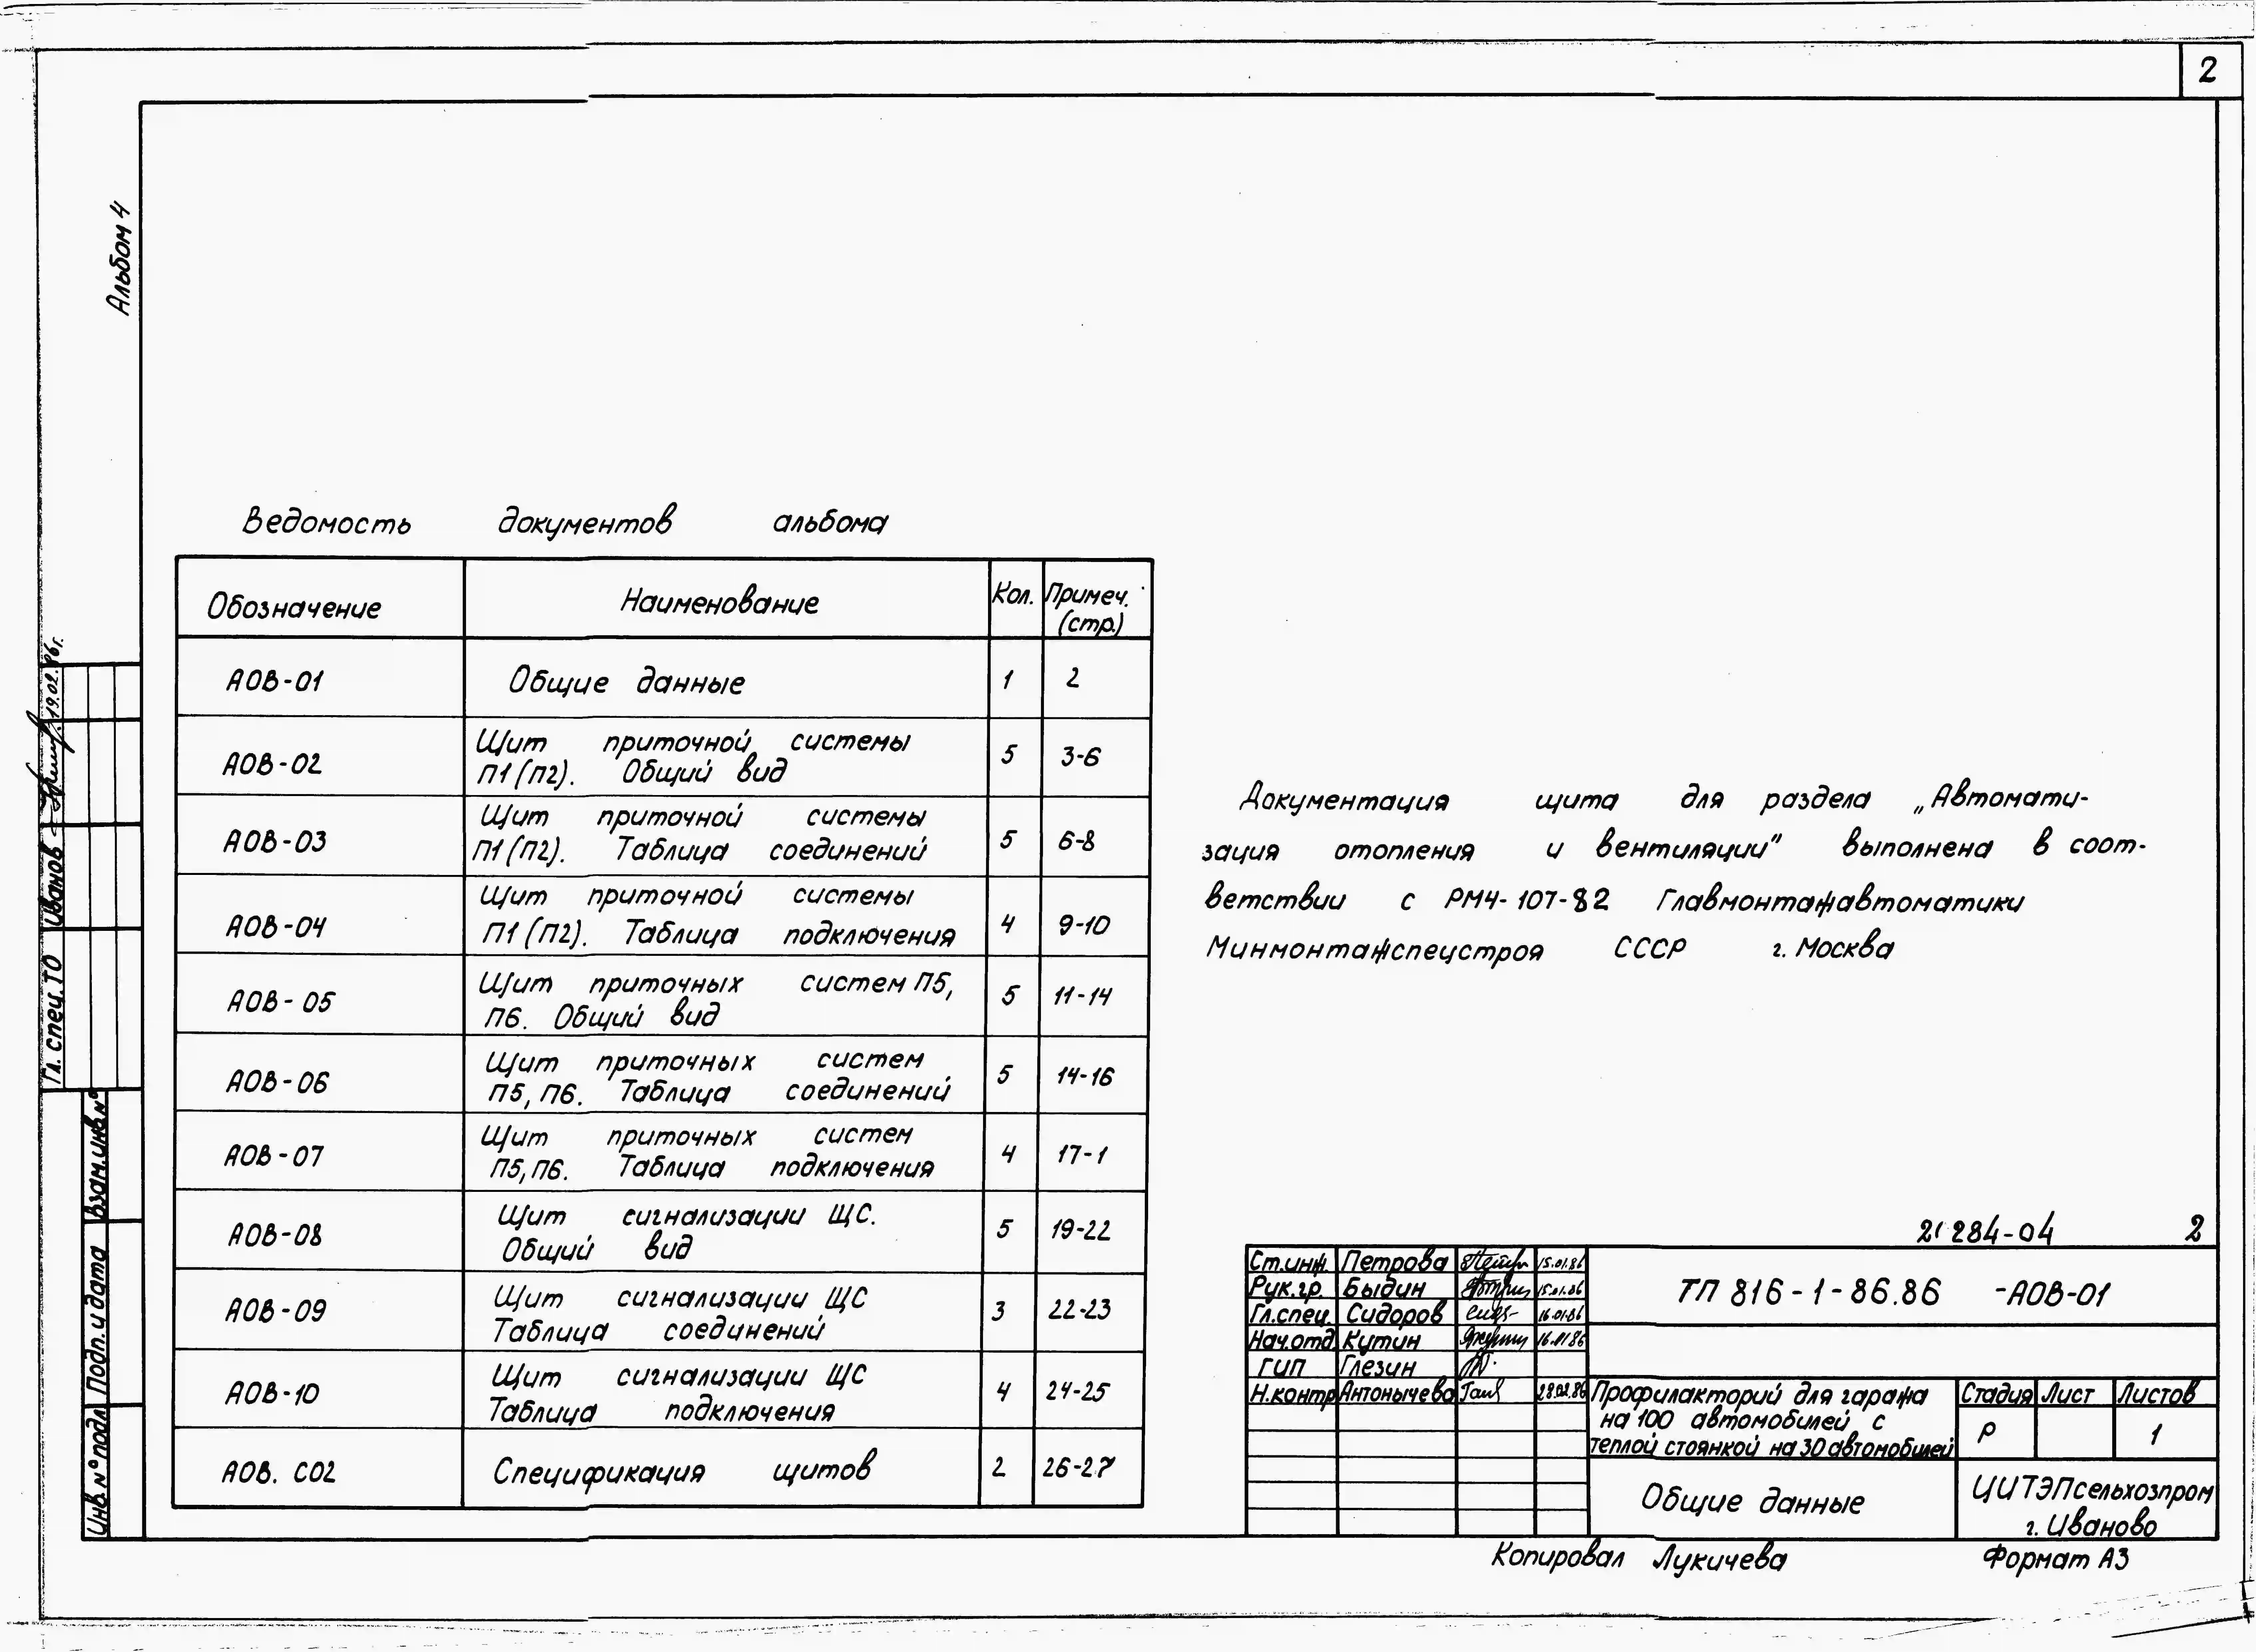 2
Альбом 4
Ведомость документов альбома
Обозначение Наименование Кол. Примеч. (стр.)
АОВ-01 Общие данные 1 2
АОВ-02 Щит приточной системы 5 3-6
П1(П2). Общий вид
АОВ-03 Щит приточной системы 5 6-8
П1(П2). Таблица соединений
АОВ-04 Щит приточной системы 4 9-10
П1(П2). Таблица подключения
АОВ-05 Щит приточных систем П5, 5 11-14
П6. Общий вид
АОВ-06 Щит приточных систем 5 14-16
П5, П6. Таблица соединений
АОВ-07 Щит приточных систем 4 17-1
П5, П6. Таблица подключения
АОВ-08 Щит сигнализации ЩС. 5 19-22
Общий вид
АОВ-09 Щит сигнализации ЩС 3 22-23
Таблица соединений
АОВ-10 Щит сигнализации ЩС 4 24-25
Таблица подключения
АОВ. СО2 Спецификация щитов 2 26-27
Документация щита для раздела „Автомати-
зация отопления и вентиляции" выполнена в соот-
ветствии с РМ4-107-82 Главмонтажавтоматики
Минмонтажспецстроя СССР г. Москва
21284-04 2
Ст.инж. Петрова 15.01.86
Рук.гр. Быдин 15.01.86
Гл.спец. Сидоров 16.01.86
Нач.отд. Кутин 16.01.86
ГИП Глезин
Н.контр Антонычева 28.02.86
ТП 816-1-86.86 -АОВ-01
Профилакторий для гаража
на 100 автомобилей с
теплой стоянкой на 30 автомобилей
Стадия Лист Листов
Р 1
Общие данные
ЦИТЭПсельхозпром
г. Иваново
Копировал Лукичева Формат А3
Гл. спец. ТО Иванов 19.02.86г.
Взам.инв.№
Подп. и дата
Инв.№ подл